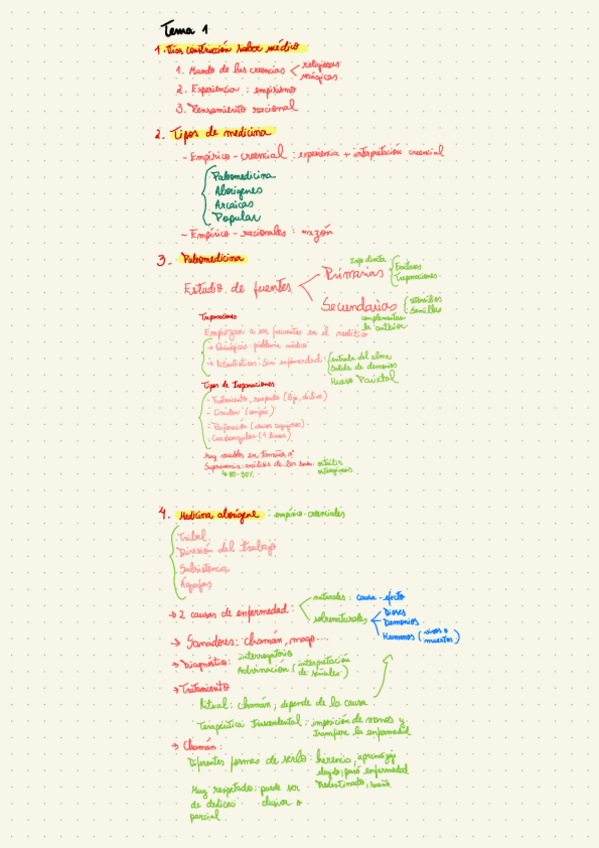 Tema 1
1. Vías construcción saber médico
1. Mundo de las creencias religiosas
mágicas
2. Experiencia : empirismo
3. Pensamiento racional
2. Tipos de medicina
- Empírico-creencial : experiencia + interpretación creencial
Paleomedicina
Aborígenes
Arcaicas
Popular
- Empírico-racionales : razón
3. Paleomedicina
Estado de fuentes
Primarias
Secundarias
complementan
la anterior
Trepanaciones
Empiezan a ser frecuentes en el neolítico
→ Quirúrgicas: problema médico
→ Ritualísticas: Sin enfermedad : entrada del alma
Salida de demonios
Hueso Parietal
Tipos de Trepanaciones
- Circular
- Cuadrangular (4 líneas)
Muy variables en tamaño, nº
Supervivencia: análisis de los
4. Medicina aborigene : empírico-creenciales
Tribal
División del trabajo
Subsistencia
Ágrafos
→ 2 causas de enfermedad:
naturales: causa-efecto
sobrenaturales
Dioses
Demonios
Humanos (vivos o
muertos)
→ Sanadores: chamán, mago....
→ Diagnóstico: interrogatorio
Adivinación (interpretación
de señales)
→ Tratamiento
Ritual: chamán, depende de la causa
Terapéutica Trascendental: imposición de manos y
transfiere la enfermedad
→ Chamán:
Diferentes formas de serlo: herencia,
elegido, pasó enfermedad
Predestinado,
Muy respetado: puede ser
o
parcial